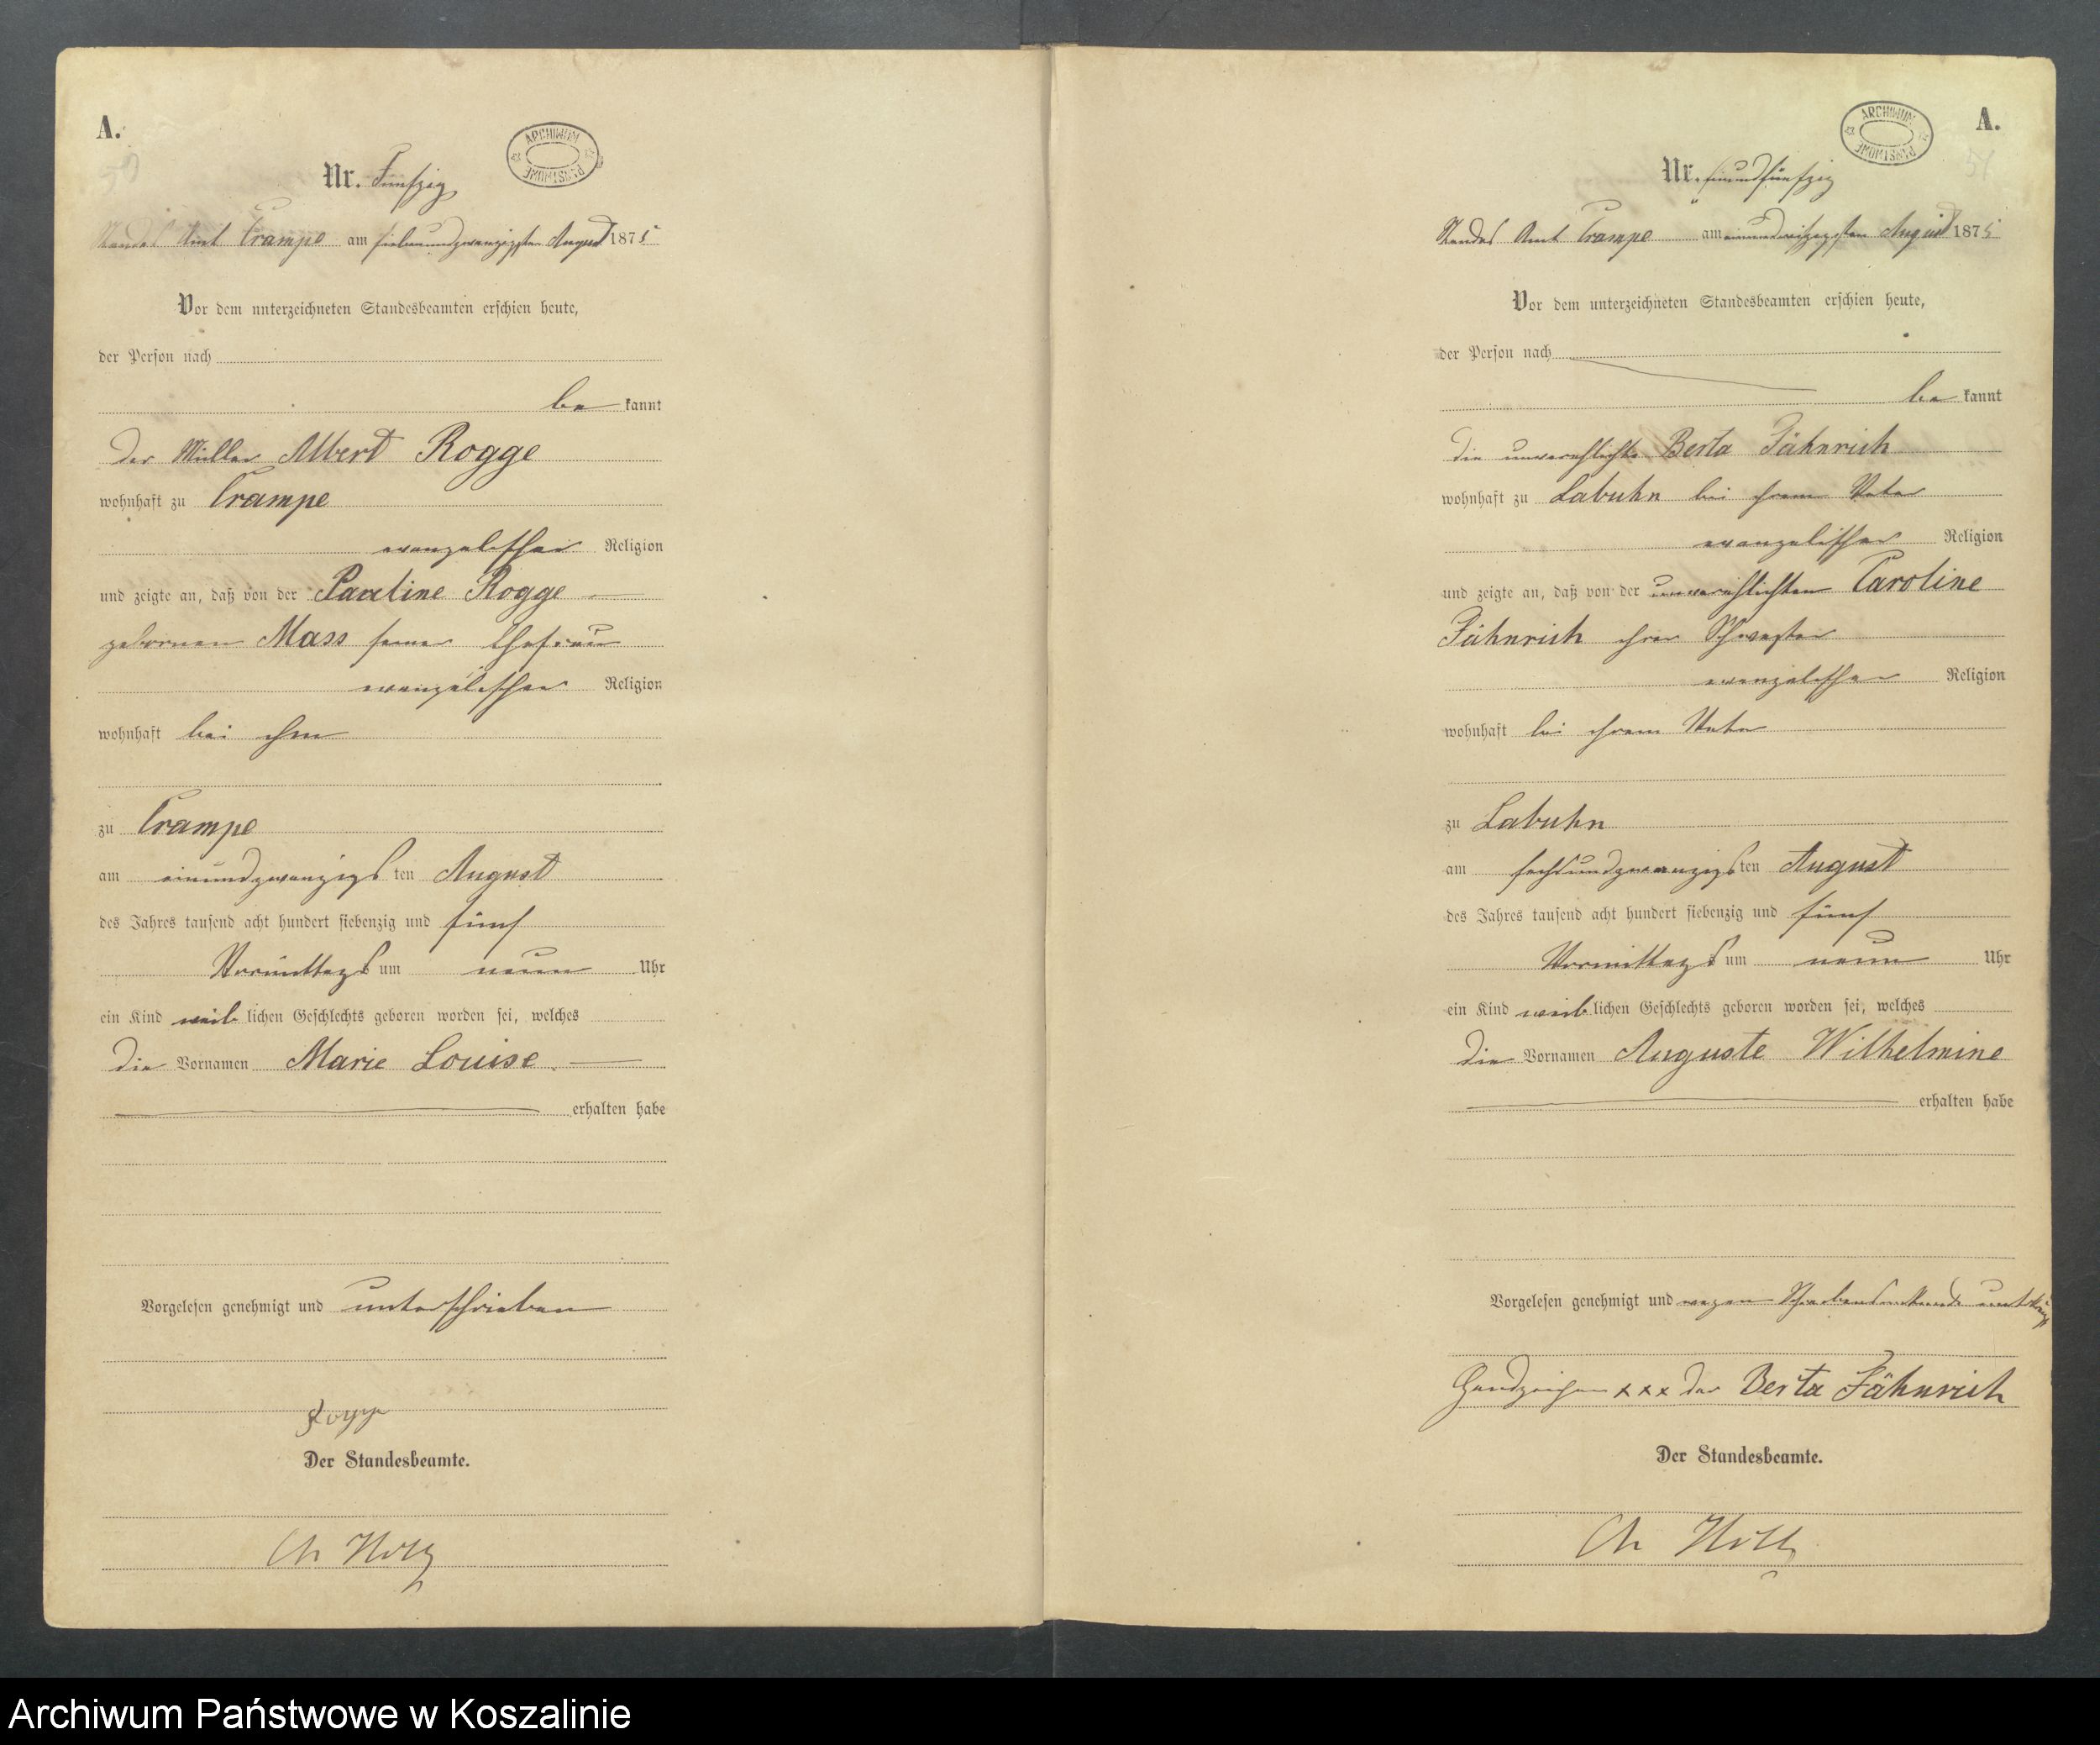 A.
50
ARCHIWUM PAŃSTWOWE
Nr. Funfzig
Standes Amt Crampe am siebenundzwanzigsten August 1875
Vor dem unterzeichneten Standesbeamten erschien heute,
der Person nach
be kannt
der Müller Albert Rogge
wohnhaft zu Crampe
evangelischer Religion
und zeigte an, daß von der Pauline Rogge
gebornen Mass seiner Ehefrau
evangelischer Religion
wohnhaft bei ihm
zu Crampe
am einundzwanzigs ten August
des Jahres tausend acht hundert siebenzig und fünf
Vormittags um neun Uhr
ein Kind weib lichen Geschlechts geboren worden sei, welches
die Vornamen Marie Louise
erhalten habe
Vorgelesen genehmigt und unterschrieben
Rogge
Der Standesbeamte.
A.
51
ARCHIWUM PAŃSTWOWE
Nr. einundfünfzig
Standes Amt Crampe am einunddreißigsten August 1875
Vor dem unterzeichneten Standesbeamten erschien heute,
der Person nach
be kannt
die unverehlichte Berta Fähnrich
wohnhaft zu Labuhn bei ihrem Vater
evangelischer Religion
und zeigte an, daß von der unverehlichten Caroline
Fähnrich ihrer Schwester
evangelischer Religion
wohnhaft bei ihrem Vater
zu Labuhn
am sechsundzwanzigs ten August
des Jahres tausend acht hundert siebenzig und fünf
Vormittags um neun Uhr
ein Kind weib lichen Geschlechts geboren worden sei, welches
die Vornamen Auguste Wilhelmine
erhalten habe
Vorgelesen genehmigt und wegen
Handzeichen xxx der Berta Fähnrich
Der Standesbeamte.
Archiwum Państwowe w Koszalinie